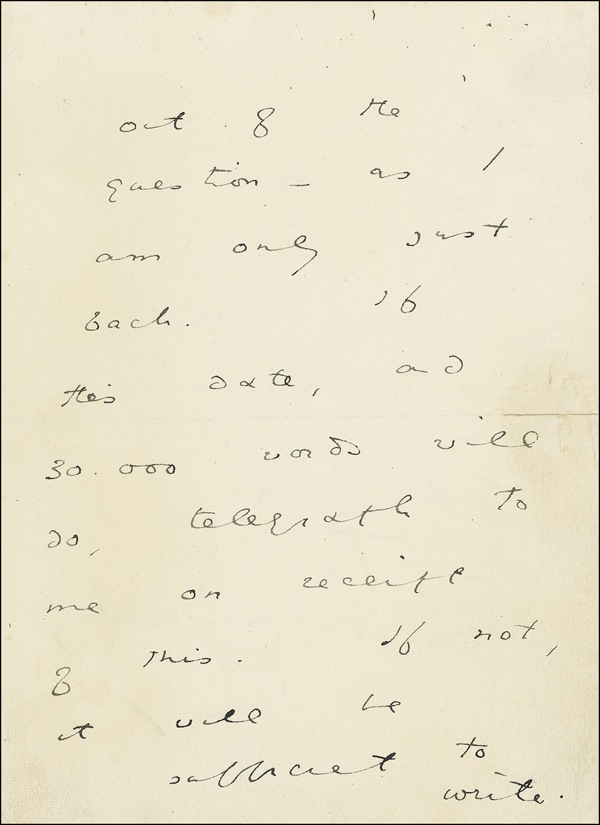 out of the
question – as I
am only just
back. If
this date, and
30.000 words will
do, telegraph to
me on receipt
of this. If not,
it will be
sufficient to
write.